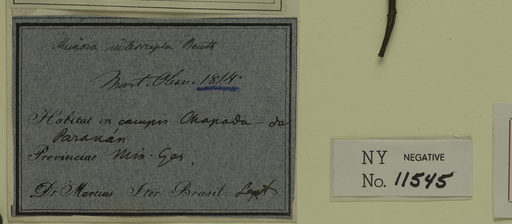 Mimosa interrupta Benth
Mart. Obsv. 1814.
Habitat in campis Chapada do
Paranán
Provinciae Min. Ger.
Dr Martius Iter Brasil. Sept
NY NEGATIVE
No. 11545